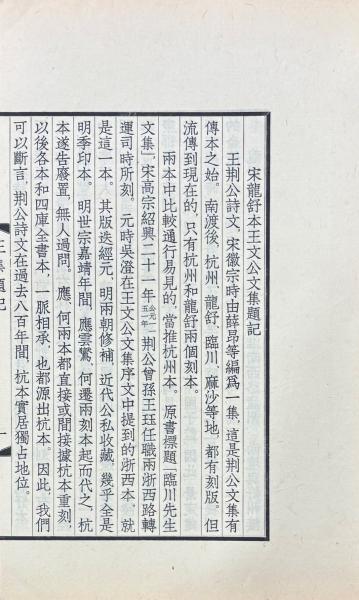 宋龍舒本王文公文集題記
王荆公詩文，宋徽宗時由薛昂等編爲一集，這是荆公文集有
傳本之始。南渡後，杭州、龍舒、臨川、麻沙等地，都有刻版。但
流傳到現在的，只有杭州和龍舒兩個刻本。
兩本中比較通行易見的，當推杭州本。原書標題「臨川先生
文集」，宋高宗紹興二十一年公元一一五一年荆公曾孫王珏任職兩浙西路轉
運司時所刻。元時吳澄在王文公文集序文中提到的浙西本，就
是這一本。其版迭經元、明兩朝修補，近代公私收藏，幾乎全是
明季印本。明世宗嘉靖年間，應雲鸑、何遷兩刻本起而代之，杭
本遂告廢置，無人過問。應、何兩本都直接或間接據杭本重刻，
以後各本和四庫全書本，一脈相承，也都源出杭本。因此，我們
可以斷言，荆公詩文在過去八百年間，杭本實居獨占地位。
王集題記
一